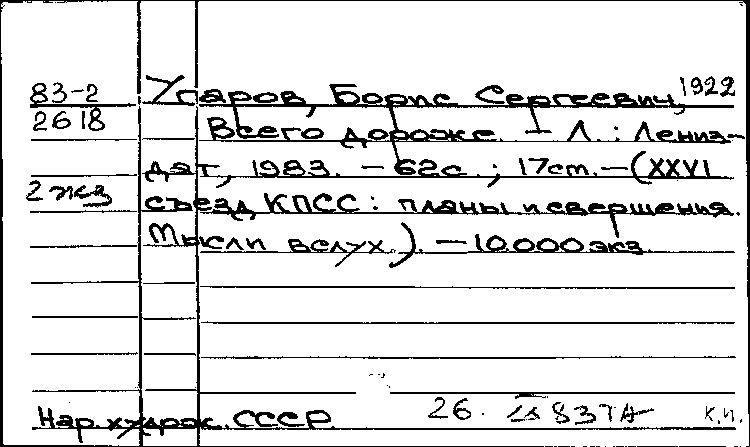 83-2 Угаров, Борис Сергеевич, 1922
2618 Всего дороже. – Л.: Лениз-
дат, 1983. – 62с.; 17ст. – (XXVI
2 экз съезд КПСС: планы и свершения.
Мысли вслух.). – 10.000 экз.
Нар. худож. СССР 26. 83 К.И.